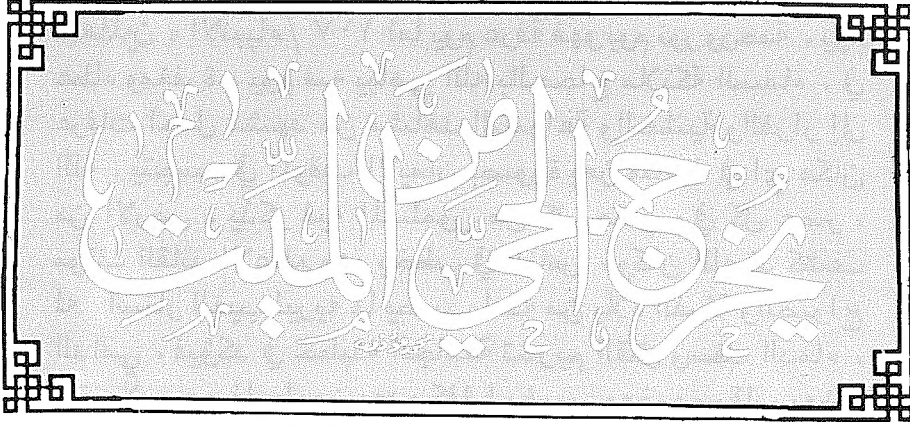 يُخْرِجُ الْحَيَّ مِنَ الْمَيِّتِ